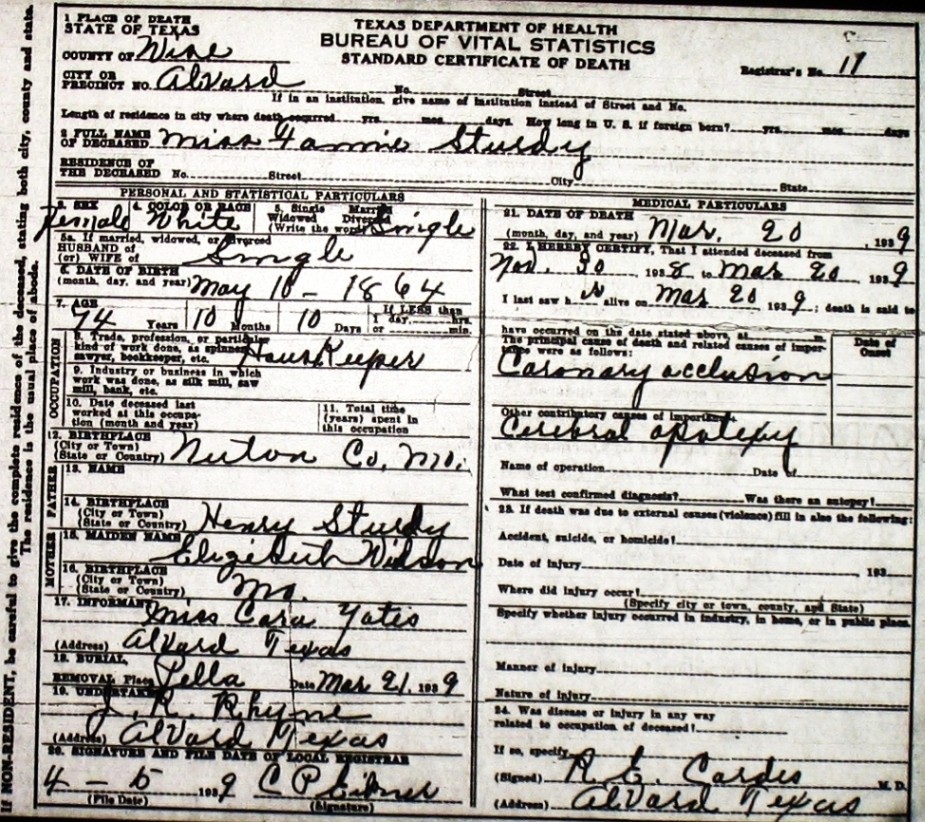 If NON-RESIDENT, be careful to give the complete residence of the deceased, stating both city, county and state.
The residence is the usual place of abode.
1 PLACE OF DEATH
STATE OF TEXAS
COUNTY OF Wise
CITY OR
PRECINCT NO. Alvard No. Street
If in an institution, give name of institution instead of Street and No.
TEXAS DEPARTMENT OF HEALTH
BUREAU OF VITAL STATISTICS
STANDARD CERTIFICATE OF DEATH
Registrar's No. 11
Length of residence in city where death occurred yrs. mos. days. How long in U. S. if foreign born? yrs. mos. days
2 FULL NAME
OF DECEASED Miss Fannie Sturdy
RESIDENCE OF
THE DECEASED No. Street City State
PERSONAL AND STATISTICAL PARTICULARS
3. SEX Female
4. COLOR OR RACE White
5. Single Married
Widowed Divorced
(Write the word) Single
5a. If married, widowed, or divorced
HUSBAND of
(or) WIFE of Single
6. DATE OF BIRTH
(month, day, and year) May 10 - 1864
7. AGE
74 Years 10 Months 10 Days
If LESS than
1 day, hrs.
or min.
OCCUPATION
8. Trade, profession, or particular
kind of work done, as spinner,
sawyer, bookkeeper, etc. House Keeper
9. Industry or business in which
work was done, as silk mill, saw
mill, bank, etc.
10. Date deceased last
worked at this occupa-
tion (month and year)
11. Total time
(years) spent in
this occupation
12. BIRTHPLACE
(City or Town)
(State or Country) Nuton Co. Mo.
FATHER
13. NAME
14. BIRTHPLACE
(City or Town)
(State or Country) Henry Sturdy
MOTHER
15. MAIDEN NAME Elizabeth Wilson
16. BIRTHPLACE
(City or Town)
(State or Country) Mo.
17. INFORMANT Miss Cara Yates
(Address) Alvard Texas
18. BURIAL,
REMOVAL Place Pella Date Mar 21, 1939
19. UNDERTAKER J. R. Rhyne
(Address) Alvard Texas
20. SIGNATURE AND FILE DATE OF LOCAL REGISTRAR
4 - 5 1939 C P
(File Date) (Signature)
MEDICAL PARTICULARS
21. DATE OF DEATH
(month, day, and year) Mar. 20 1939
22. I HEREBY CERTIFY, That I attended deceased from
Nov. 30 1938 to Mar 20 1939
I last saw h er alive on Mar 20 1939; death is said to
have occurred on the date stated above, at m.
The principal cause of death and related causes of impor-
tance were as follows:
Date of
Onset
Coronary occlusion
Other contributory causes of importance:
Cerebral apoplexy
Name of operation Date of
What test confirmed diagnosis? Was there an autopsy?
23. If death was due to external causes (violence) fill in also the following:
Accident, suicide, or homicide?
Date of injury 193
Where did injury occur?
(Specify city or town, county, and State)
Specify whether injury occurred in industry, in home, or in public place.
Manner of injury
Nature of injury
24. Was disease or injury in any way
related to occupation of deceased?
If so, specify
(Signed) R. E. M. D.
(Address) Alvard Texas